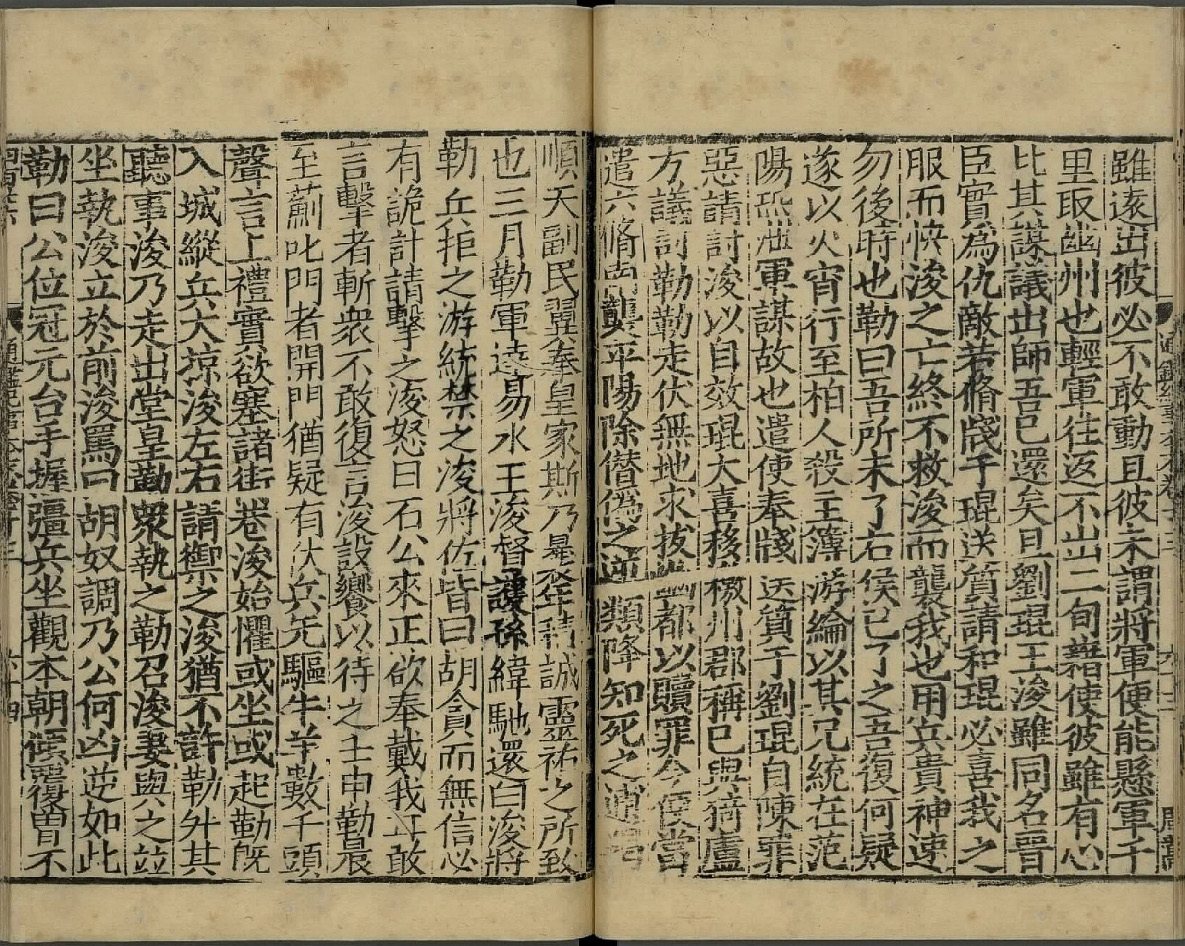 雖遠出彼必不敢動且彼未謂將軍便能懸軍千
里取幽州也輕軍往返不出二旬藉使彼雖有心
比其謀議出師吾已還矣且劉琨王浚雖同名晉
臣實為仇敵若脩牋于琨送質請和琨必喜我之
服而快浚之亡終不救浚而襲我也用兵貴神速
勿後時也勒曰吾所未了右侯已了之吾復何疑
遂以火宵行至柏人殺主簿游綸以其兄統在范
陽恐泄軍謀故也遣使奉牋送質于劉琨自陳罪
惡請討浚以自效琨大喜移檄州郡稱己與猗盧
方議討勒勒走伏無地求拔幽都以贖罪今便當
遣六脩南襲平陽除僭偽之逆類降知死之逋羯
順天副民翼奉皇家斯乃曩年積誠靈祐之所致
也三月勒軍達易水王浚督護孫緯馳還白浚將
勒兵拒之游統禁之浚將佐皆曰胡貪而無信必
有詭計請擊之浚怒曰石公來正欲奉戴我耳敢
言擊者斬衆不敢復言浚設饗以待之壬申勒晨
至薊叱門者開門猶疑有伏兵先驅牛羊數千頭
聲言上禮實欲塞諸街巷浚始懼或坐或起勒旣
入城縱兵大掠浚左右請禦之浚猶不許勒升其
聽事浚乃走出堂皇勒衆執之勒召浚妻與之並
坐執浚立於前浚罵曰胡奴調乃公何凶逆如此
勒曰公位冠元台手握彊兵坐觀本朝傾覆曾不